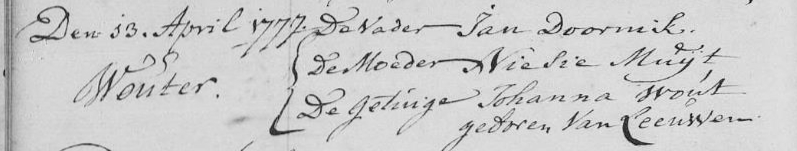 Den 13. April 1777. De Vader Jan Doornik.
Wouter. De Moeder Niesie Muÿt
De Getuige Johanna Wout
geboren Van Leeuwen